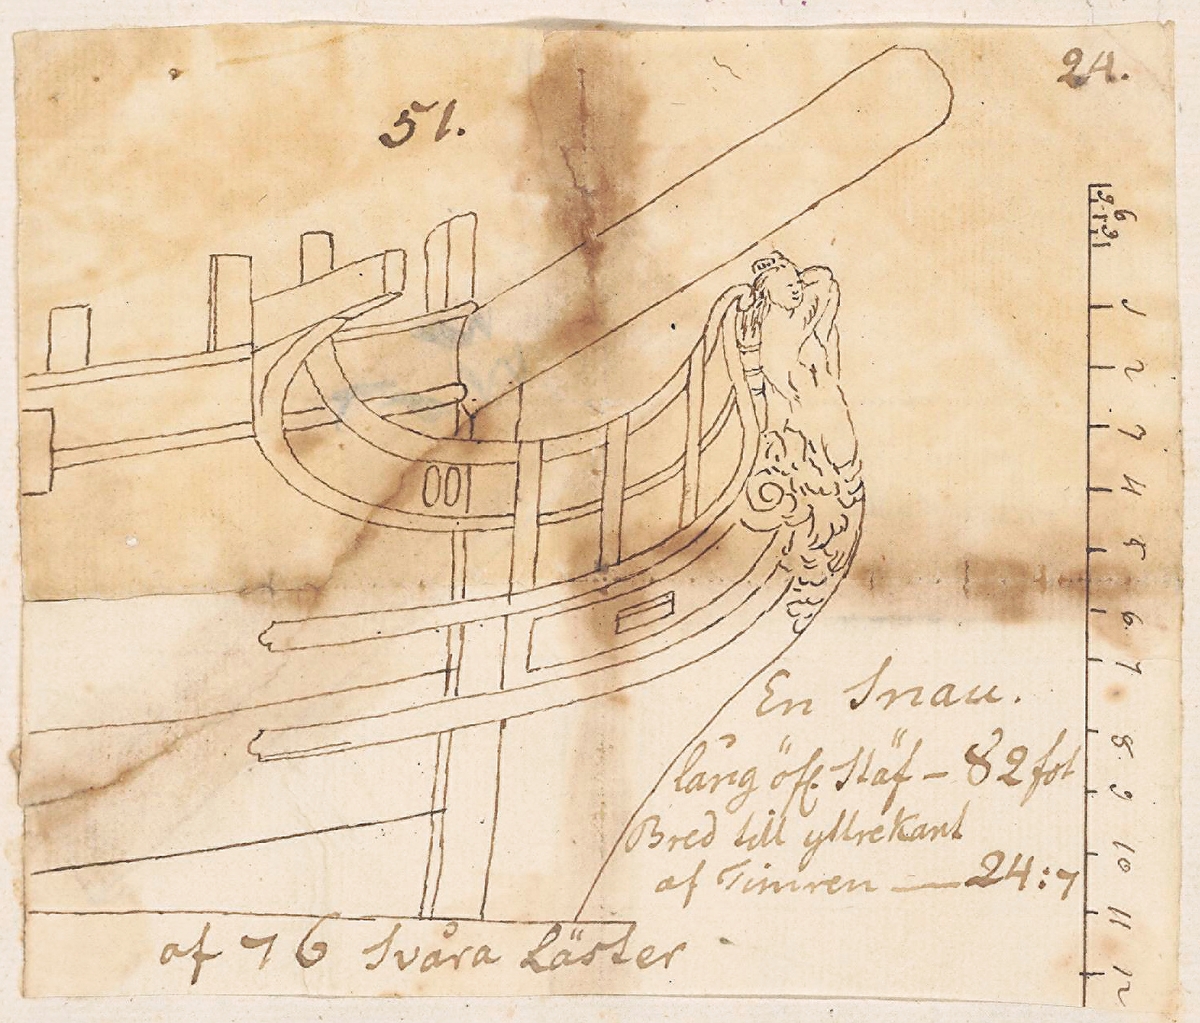 24.
51.
9 6 3
1
2
3
4
5
6
7
8
9
10
11
12
En Snau.
lång öfr Stäf – 82 fot
Bred till yttrekant
af Timren — 24:7
af 76 Svåra Läster